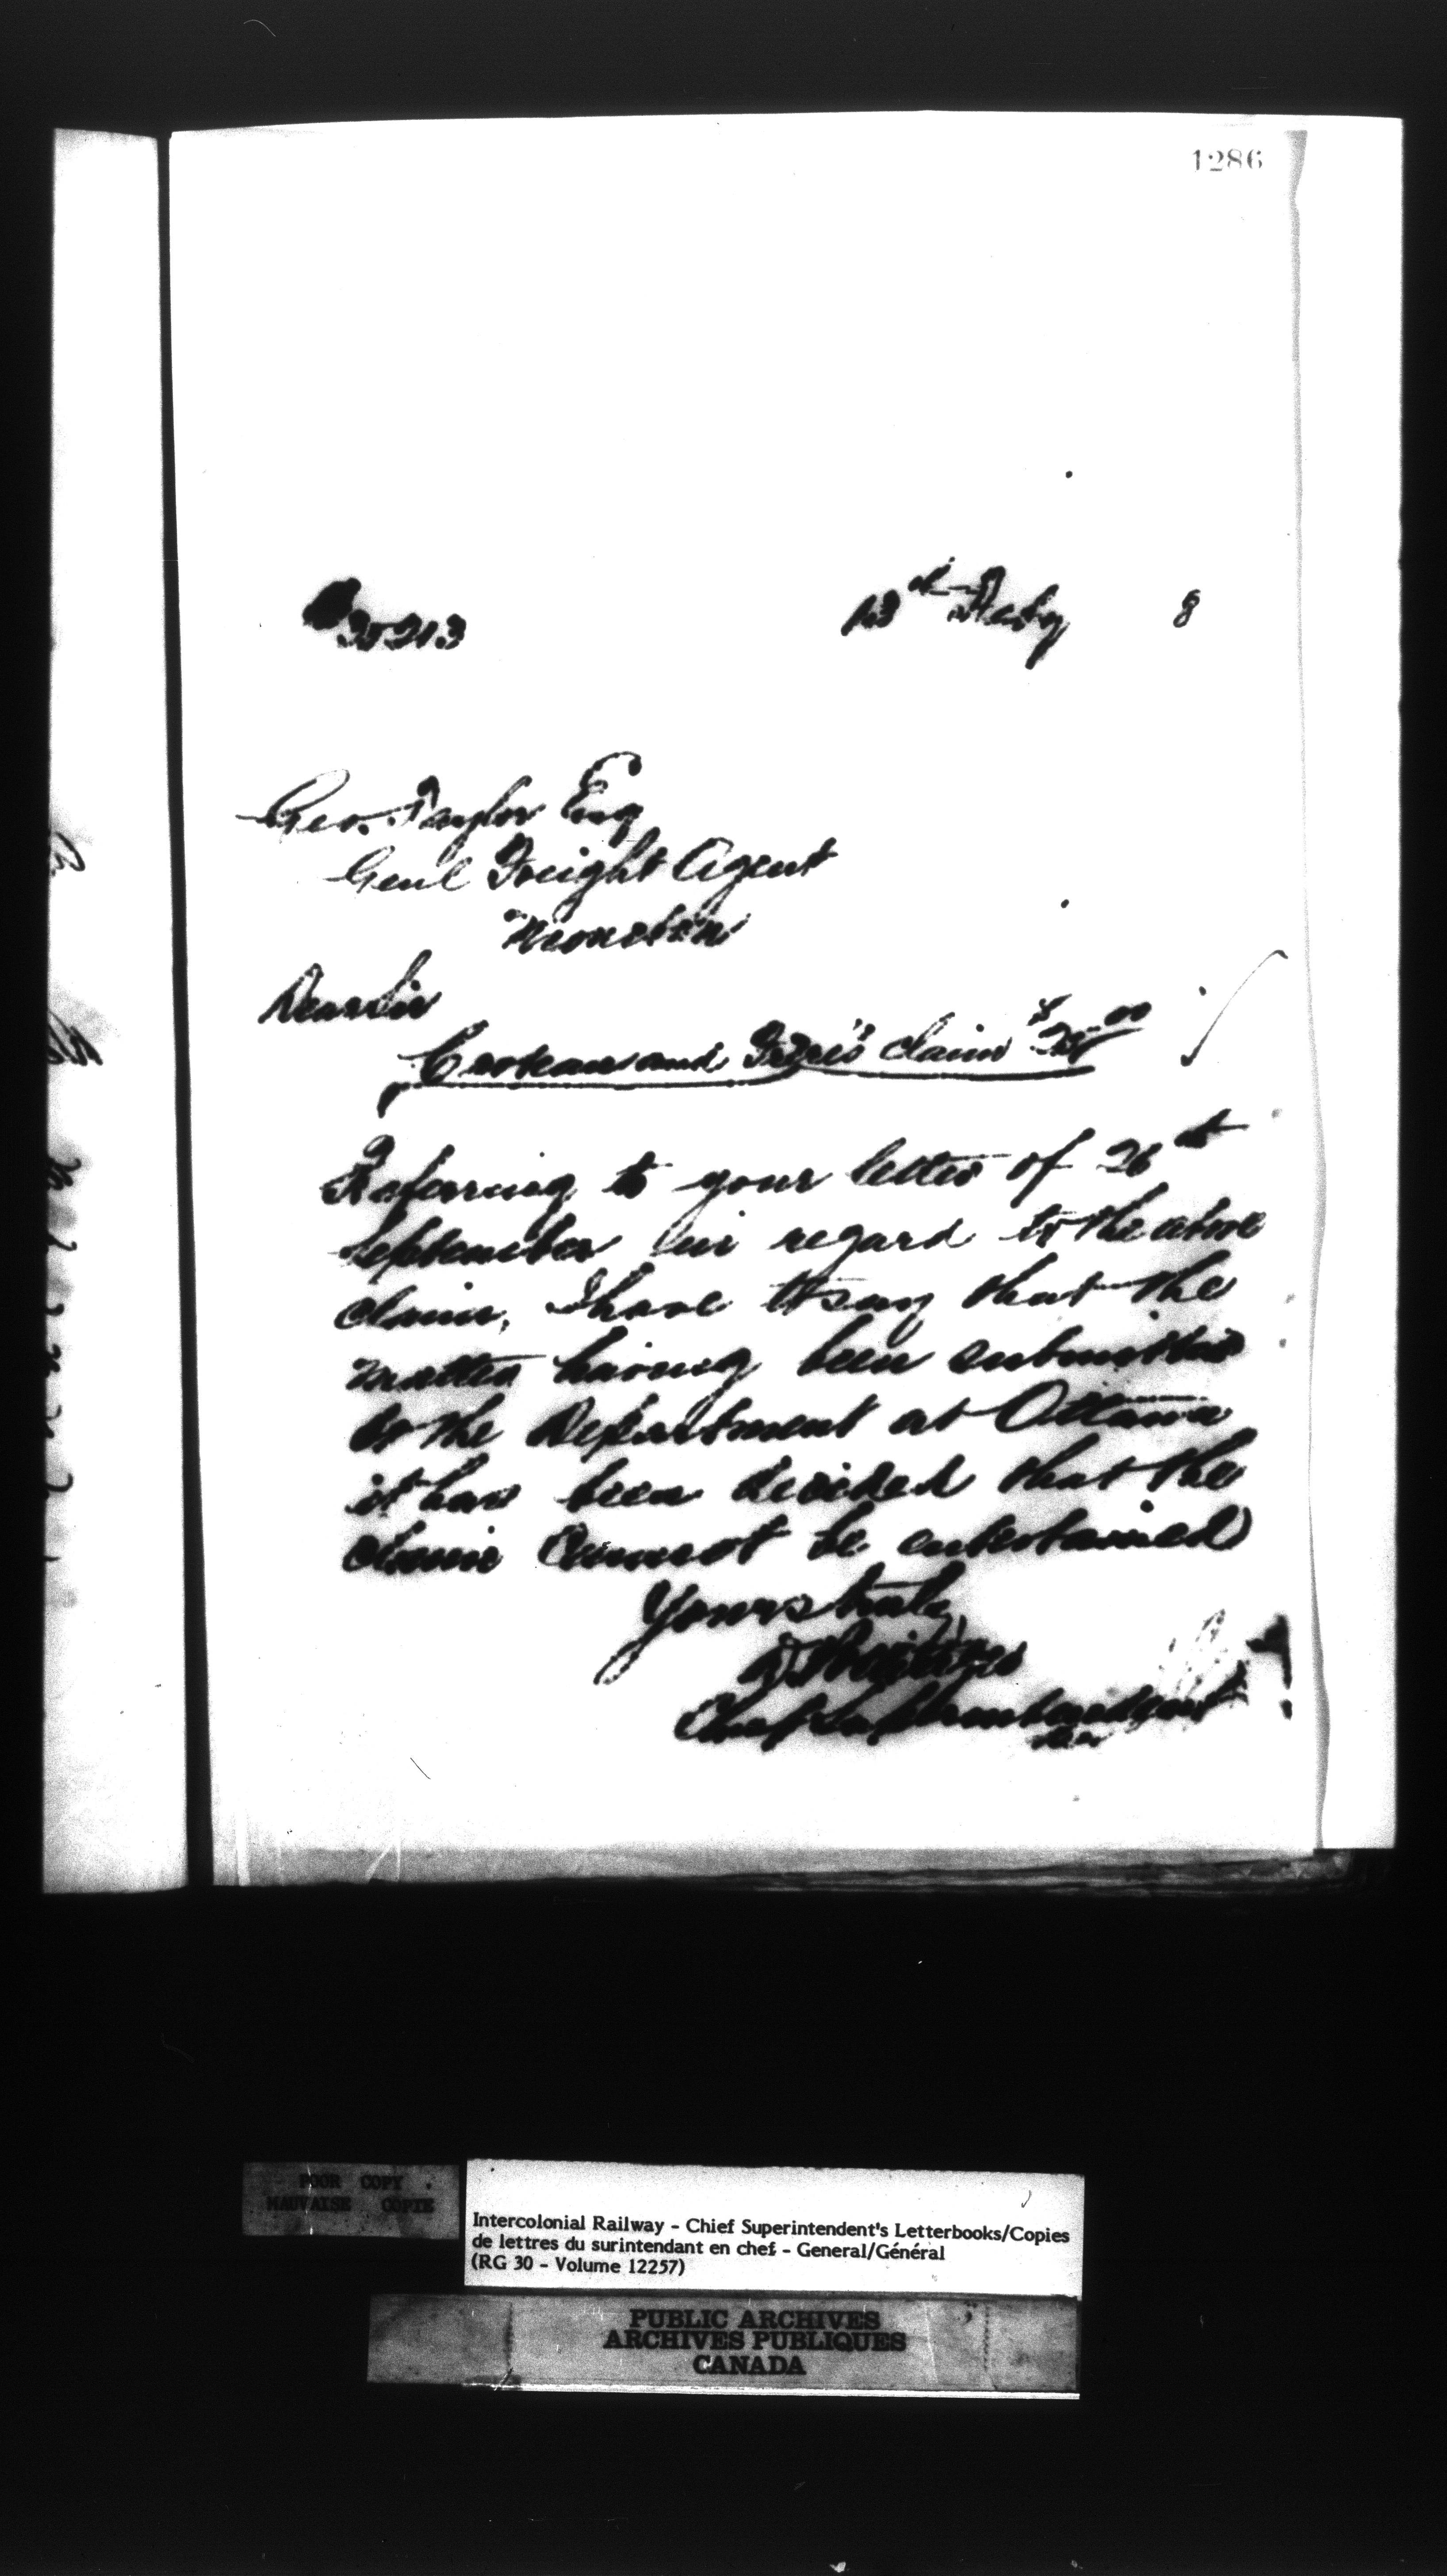 1286
13th Feby 8
Geo. Taylor Esq
Genl Freight Agent
Moncton
Dear Sir
and claim $
Referring to your letter of 26th
September in regard to the above
claim, I have to say that the
matter having been submitted
to the Department at Ottawa
it has been decided that the
claim cannot be entertained
Yours truly
Chief Superintendent
POOR COPY
MAUVAISE COPIE
Intercolonial Railway - Chief Superintendent's Letterbooks/Copies
de lettres du surintendant en chef - General/Général
(RG 30 - Volume 12257)
PUBLIC ARCHIVES
ARCHIVES PUBLIQUES
CANADA